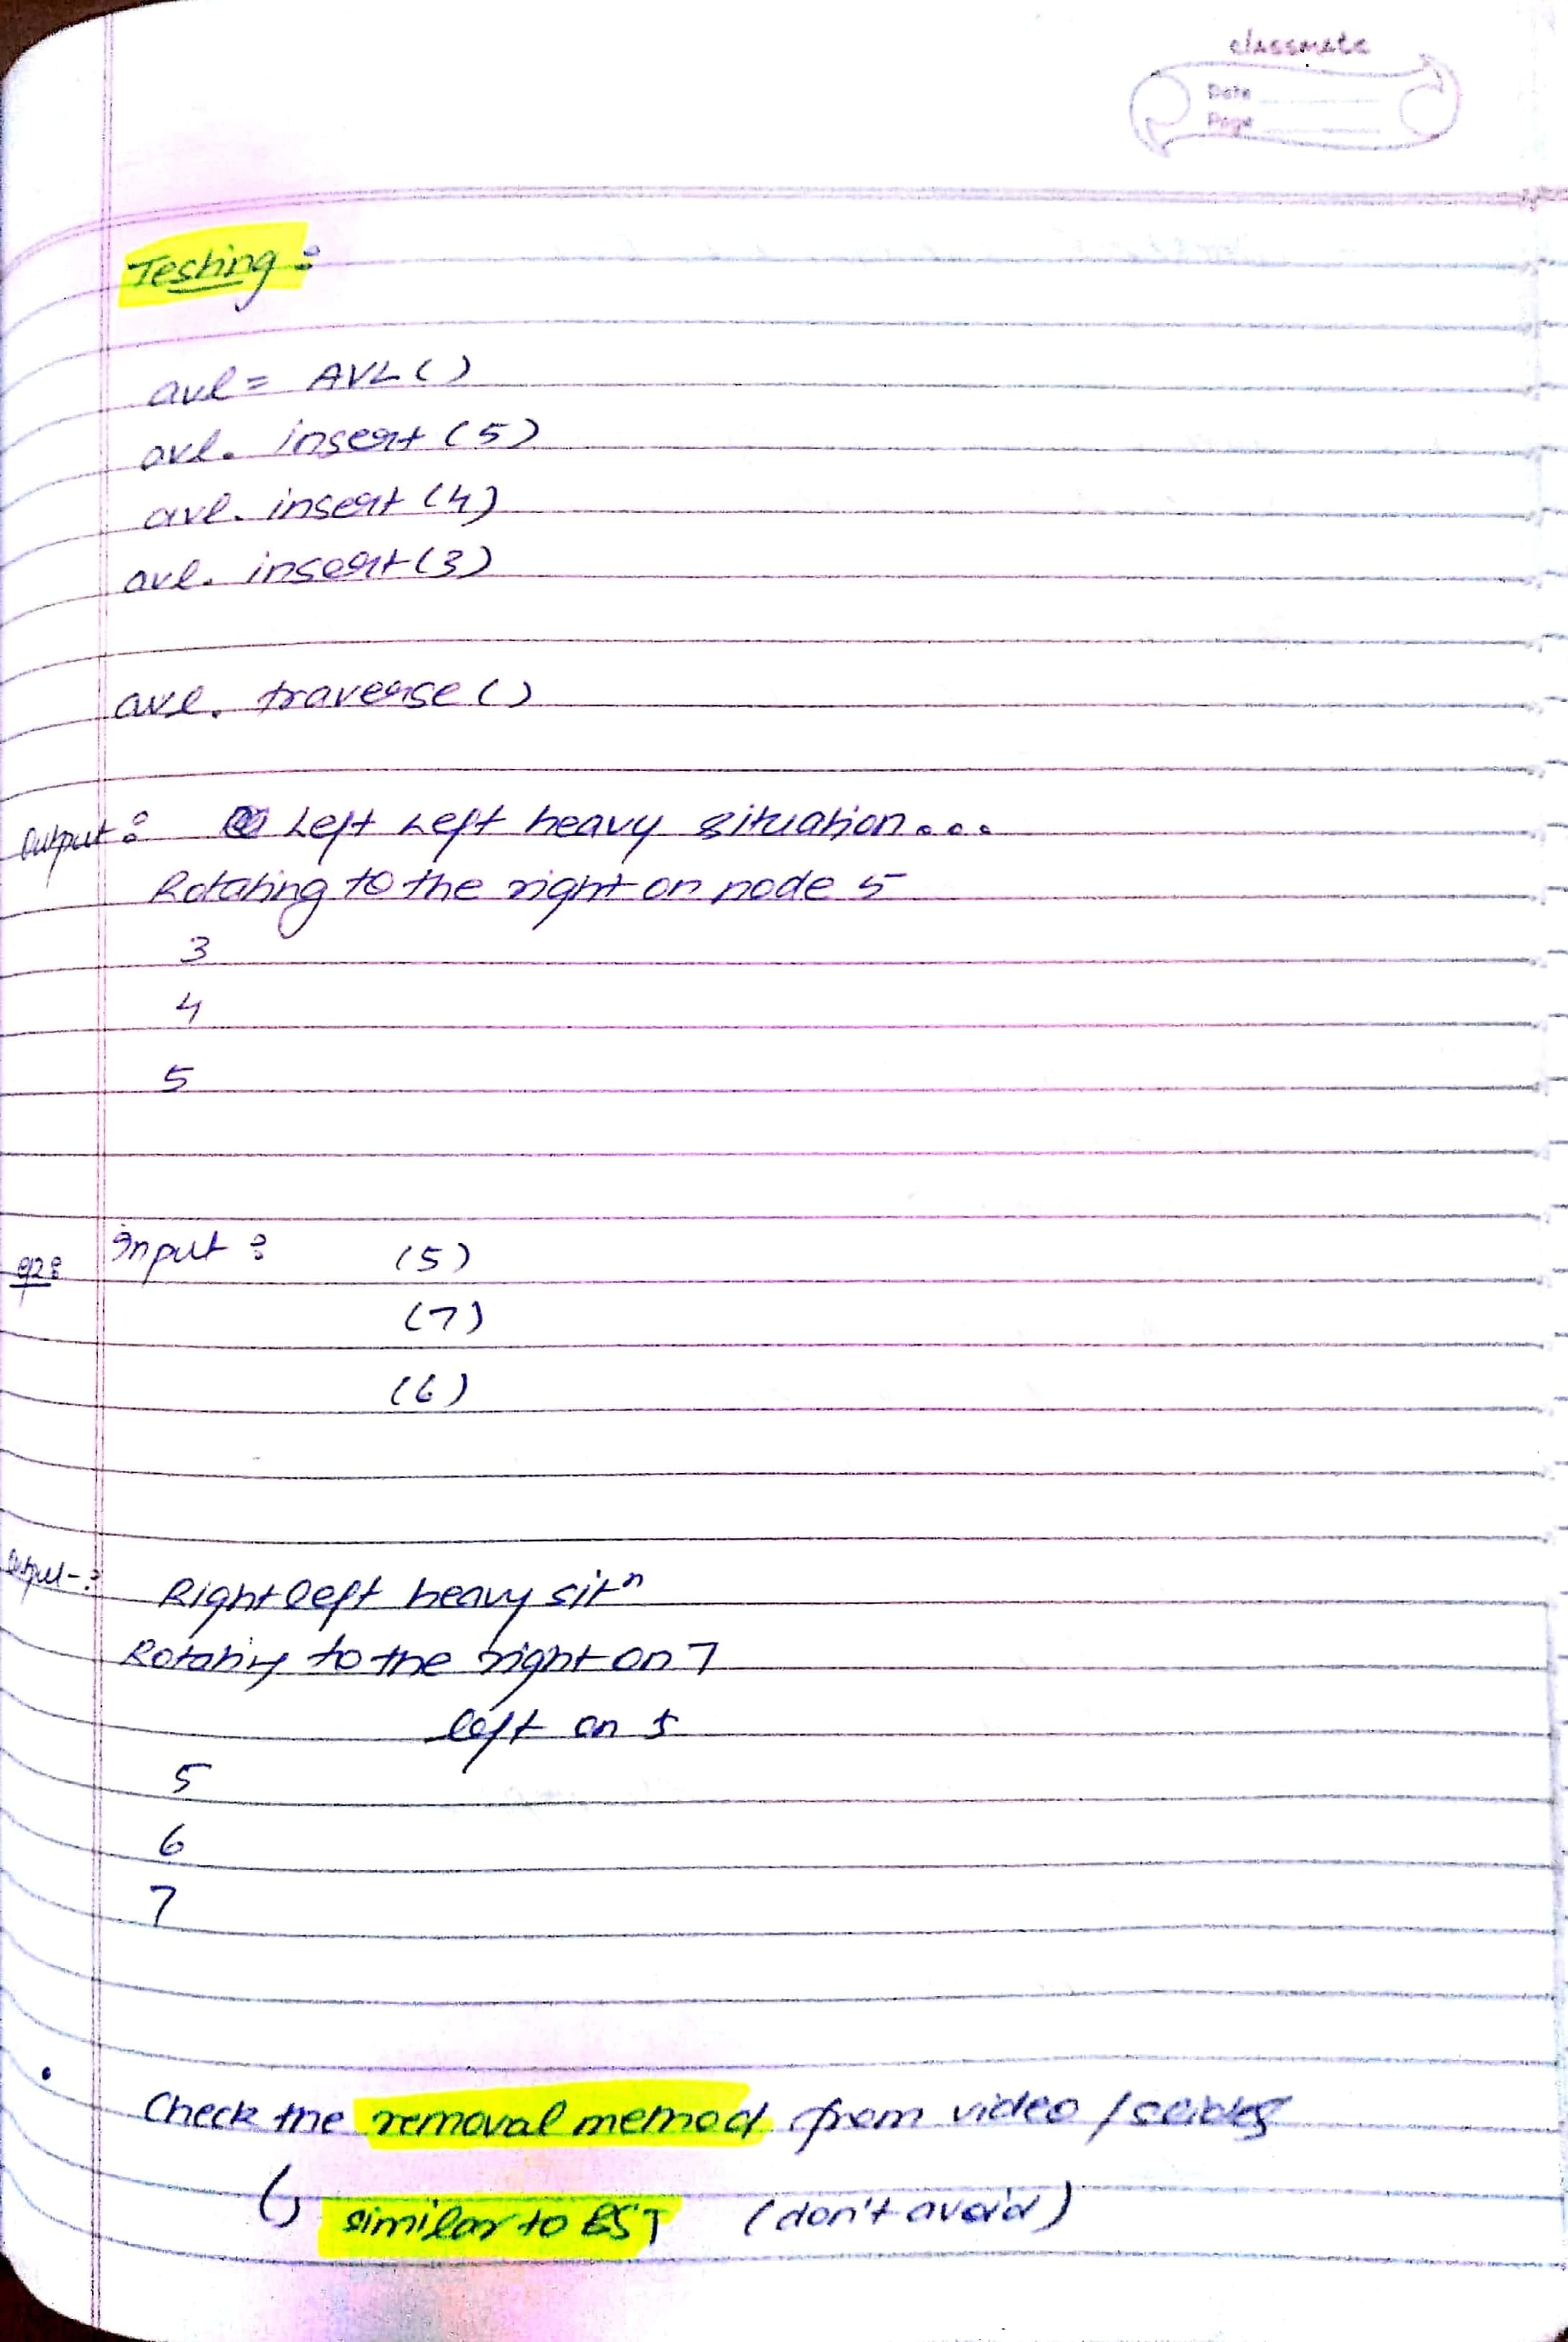 classmate
Date
Page
Testing :
avl = AVL()
avl. insert (5)
avl. insert (4)
avl. insert (3)
avl. traverse ()
Output : Left Left heavy situation...
Rotating to the right on node 5
3
4
5
Input : (5)
(7)
(6)
Output :
Right left heavy sitn
Rotating to the right on 7
left on 5
5
6
7
• Check the removal method from video /
similar to BST (don't avoid)